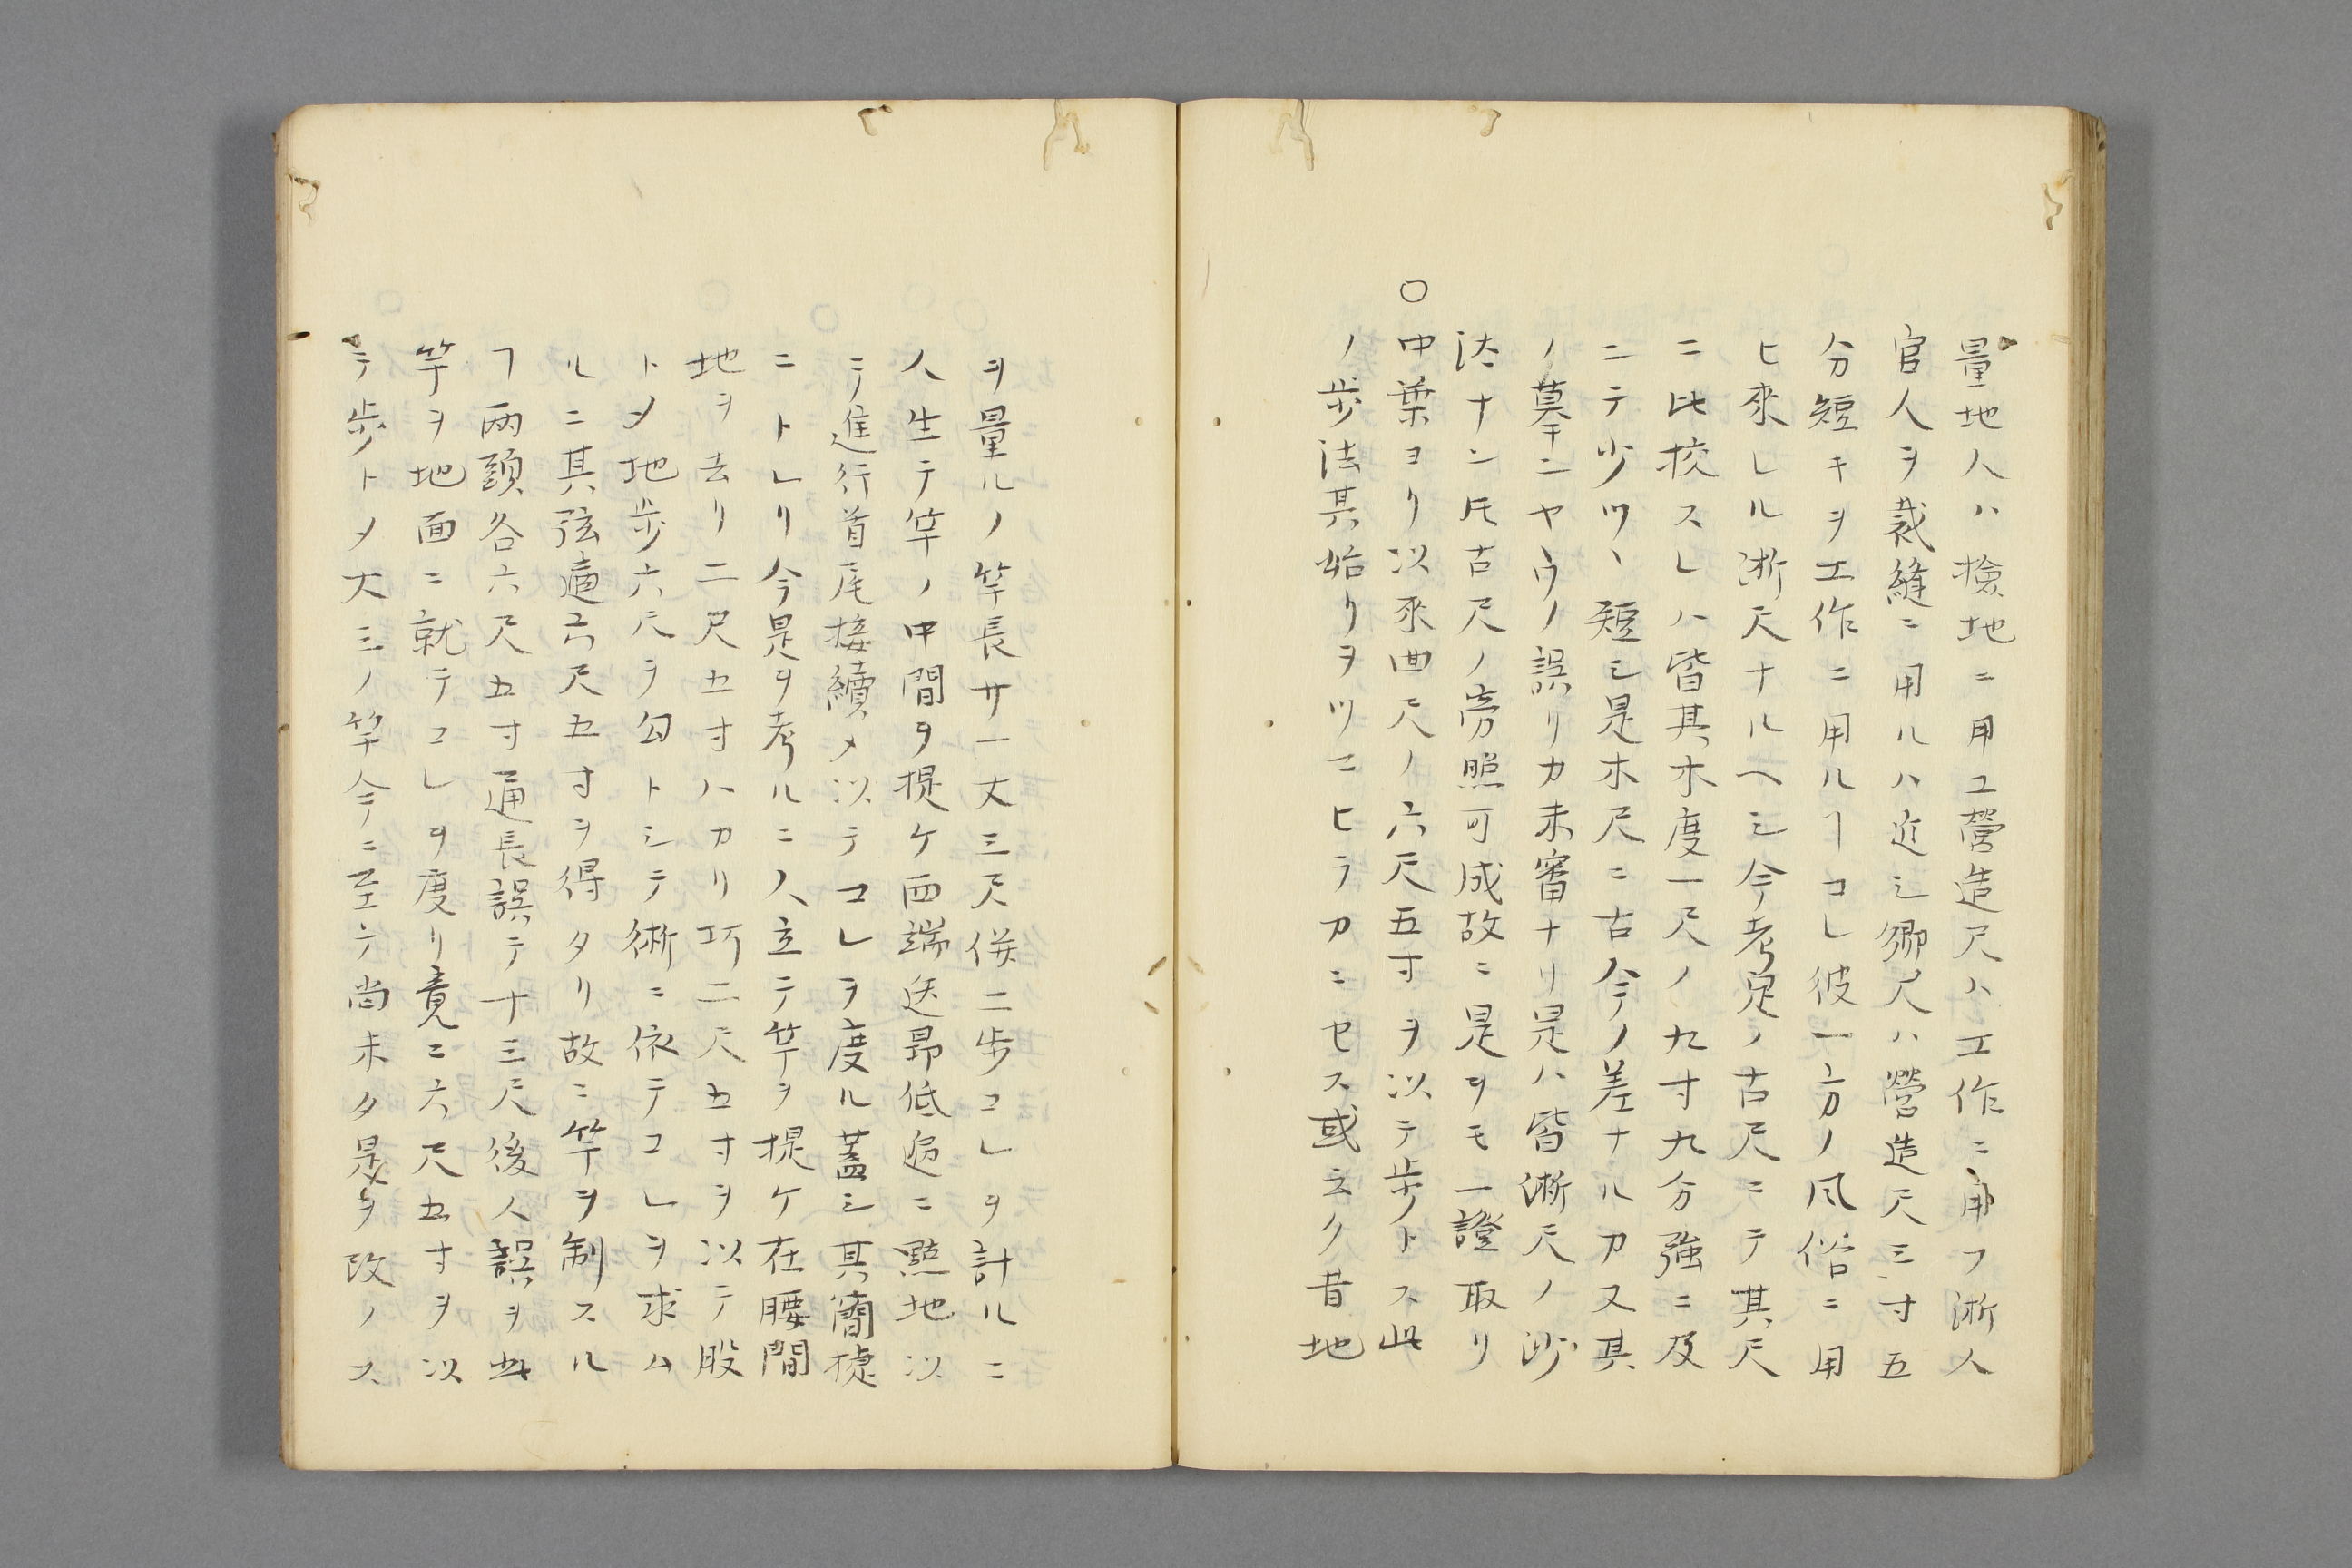 量地人ハ撿地ニ用ユ營造尺ハ工作ニ用フ淅人
官人ヲ裁縫ニ用ルハ近シ鄉尺ハ營造尺三寸五
分短キヲ工作ニ用ルヿコレ彼一方ノ風俗ニ用
ヒ來レル淅尺ナルヘシ今考定ノ古尺ニテ其尺
ニ比挍スレハ皆其木度一尺ノ九寸九分強ニ及
ニテ少ツヽ短シ是木尺ニ古今ノ差ナルカ又其
ノ摹ニヤウノ誤リカ未審ナリ是ハ皆淅尺ノ
法ナン𪜈古尺ノ旁照可成故ニ是ヲモ一證取リ
〇中葉ヨリ以來曲尺ノ六尺五寸ヲ以テ歩トス此
ノ歩法其始リヲツマヒラカニセス或云ク昔地
ヲ量ルノ竿長サ一丈三尺併二歩コレヲ計ルニ
人生テ竿ノ中間ヲ提ケ両端迭昂低迨ニ點地以
テ進行首尾接續メ以テコレヲ度ル蓋シ其簡捷
ニトレリ今是ヲ考ルニ人立テ竿ヲ提ケ在腰間
地ヲ去リ二尺五寸ハカリ巧二尺五寸ヲ以テ股
トメ地歩六尺ヲ勾トシテ術ニ依テコレヲ求ム
ルニ其弦適六尺五寸ヲ得タリ故ニ竿ヲ制スル
ヿ両頭各六尺五寸通長誤テ十三尺後人誤ヲ此
竿ヲ地面ニ就テコレヲ度リ竟ニ六尺五寸ヲ以
テ歩トメ大三ノ竿今ニ至テ尚未タ是ヲ改ノス